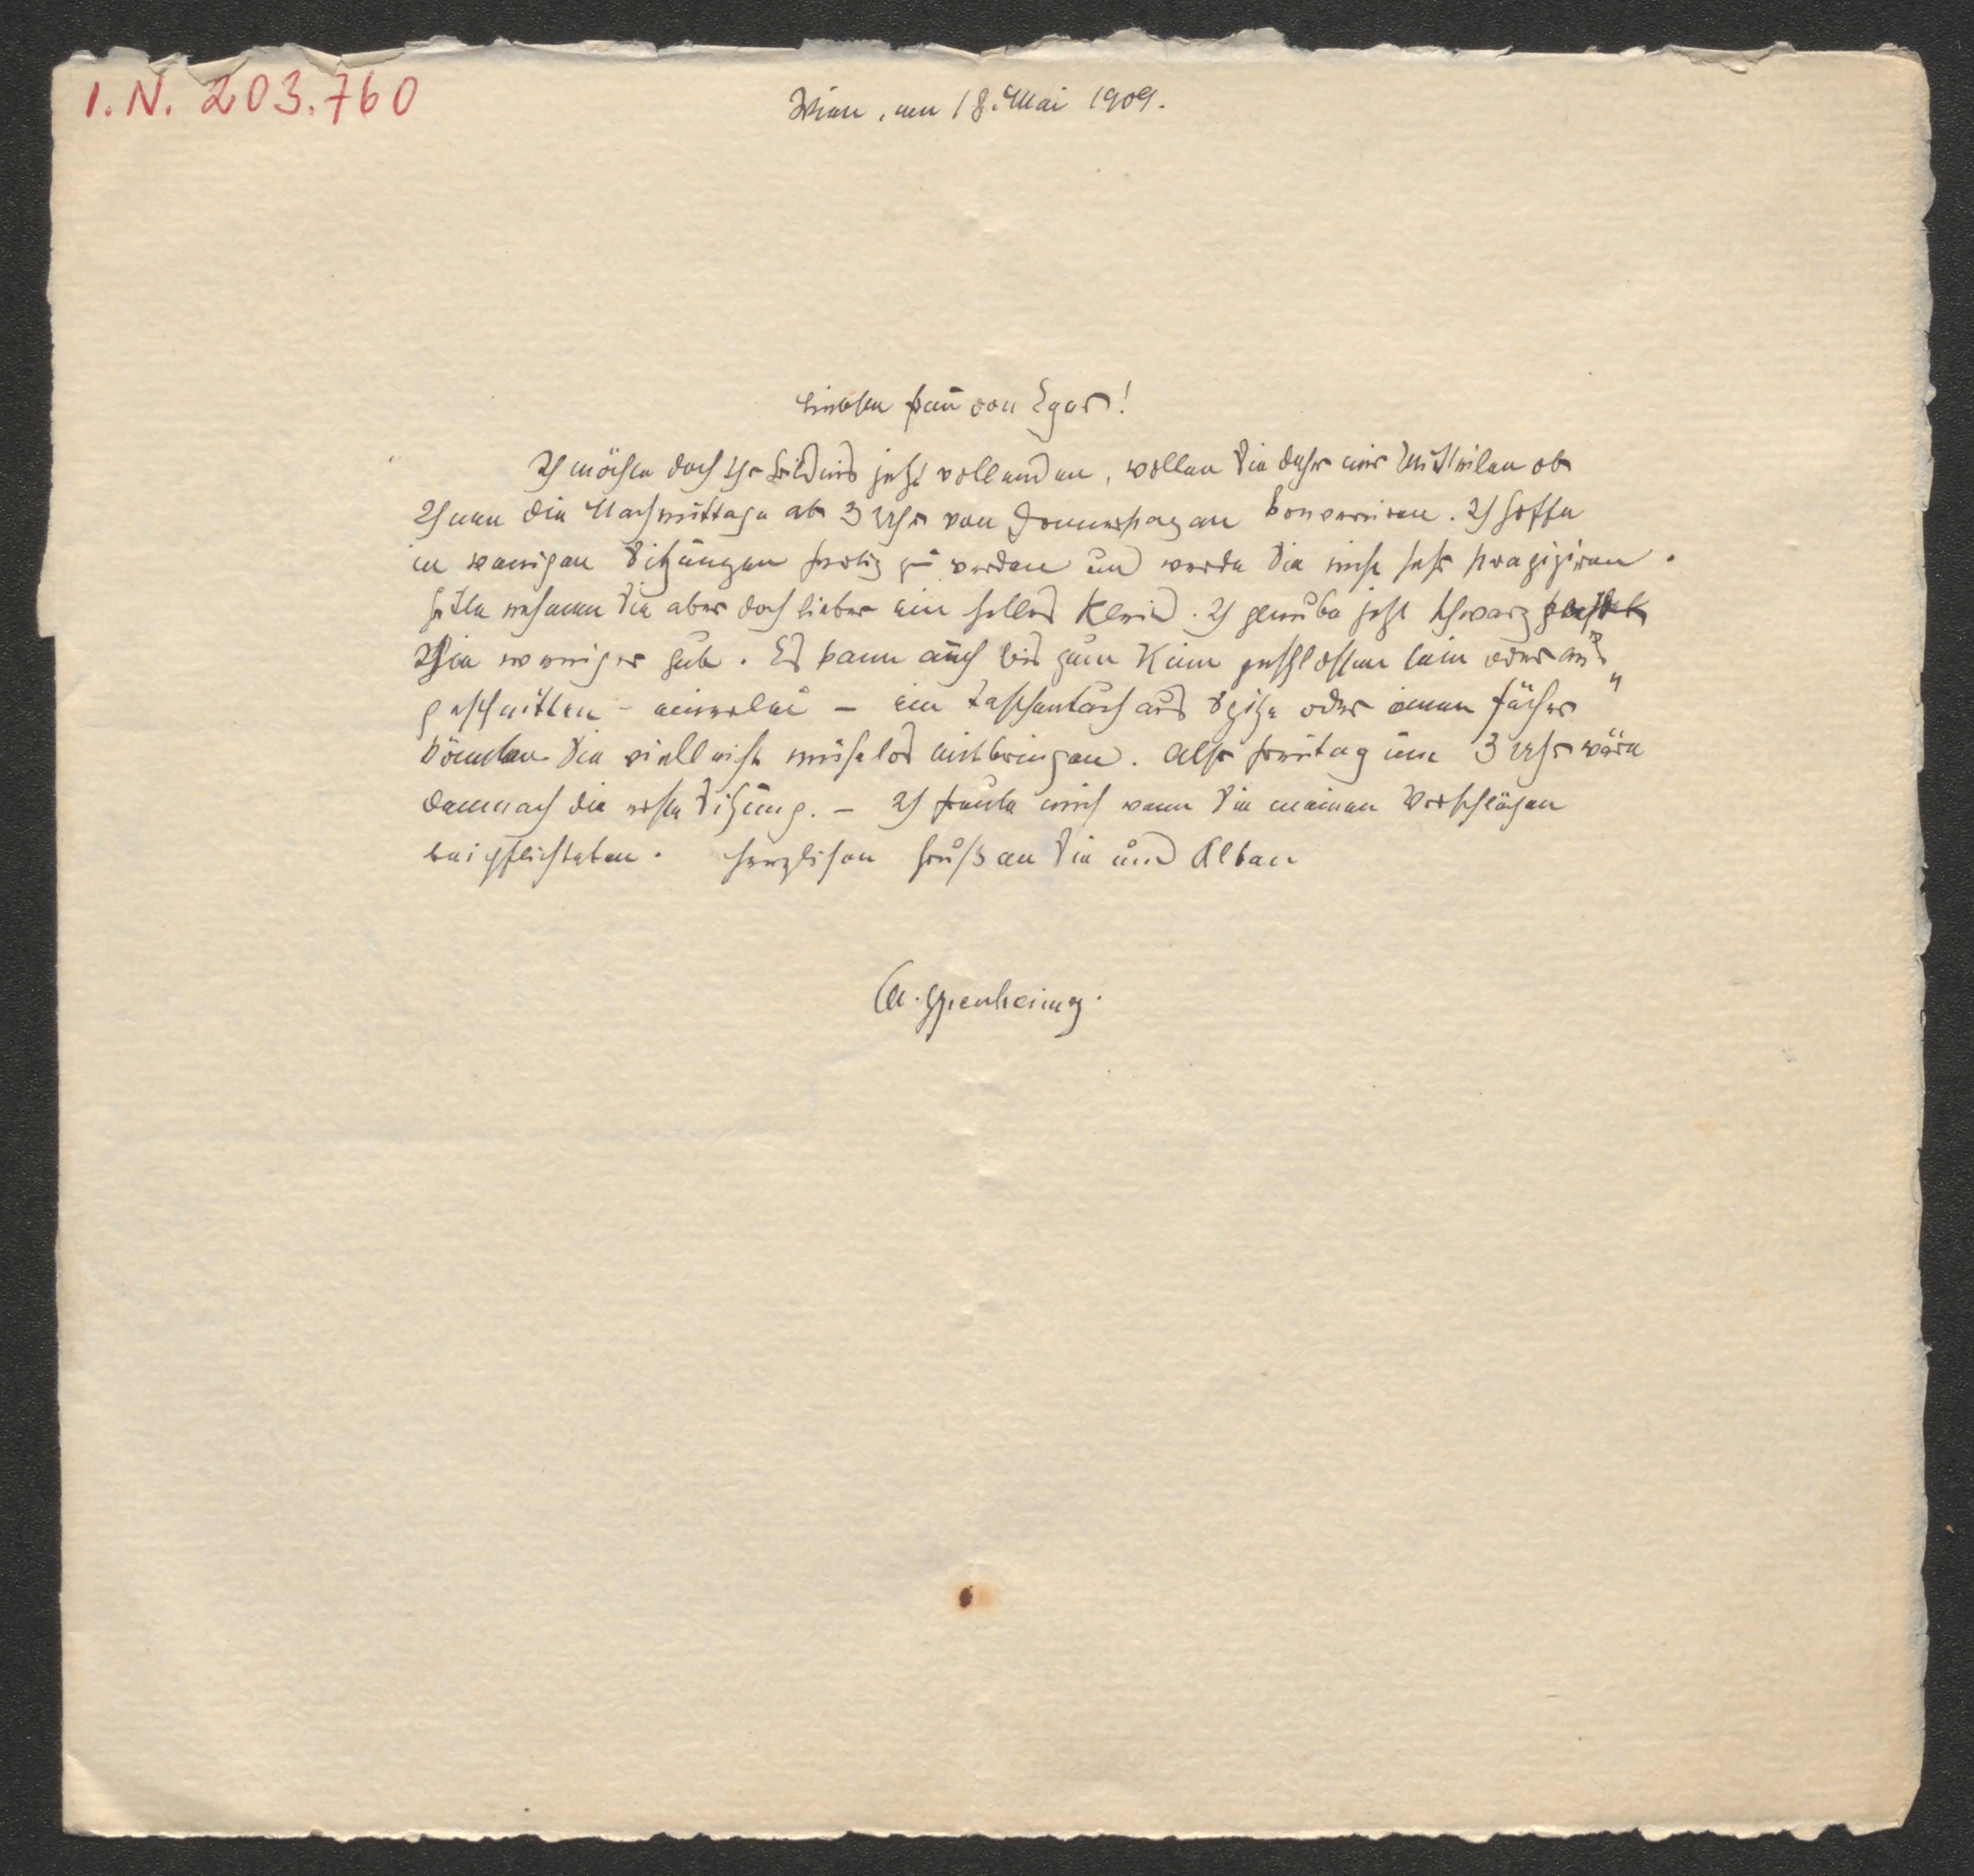 I.N. 203.760
Wien, am 18. Mai 1909.
Liebste Frau von Eger!
Ich möchte doch Ihr Bildnis jetzt vollenden, wollen Sie daher mir Mittheilen ob
Ihnen die Nachmittage ab 3 Uhr von Donnerstag an konveniren. Ich hoffe
in wenigen Sitzungen fertig zu werden und werde Sie nicht sehr
Bitte nehmen Sie aber doch lieber ein helles Kleid. Ich glaube jetzt schwarz
Sie weniger gut. Es kann auch bis zum Kinn geschlossen sein oder aus„
geschnitten – einerlei – ein Taschentuch aus Spitze oder einen Fächer
könnten Sie vielleicht mühelos mitbringen. Also Freitag um 3 Uhr wäre
demnach die erste Sitzung. – Ich freute mich wenn Sie meinen Vorschlägen
beipflichteten. Herzlichen Gruß an Sie und Alban